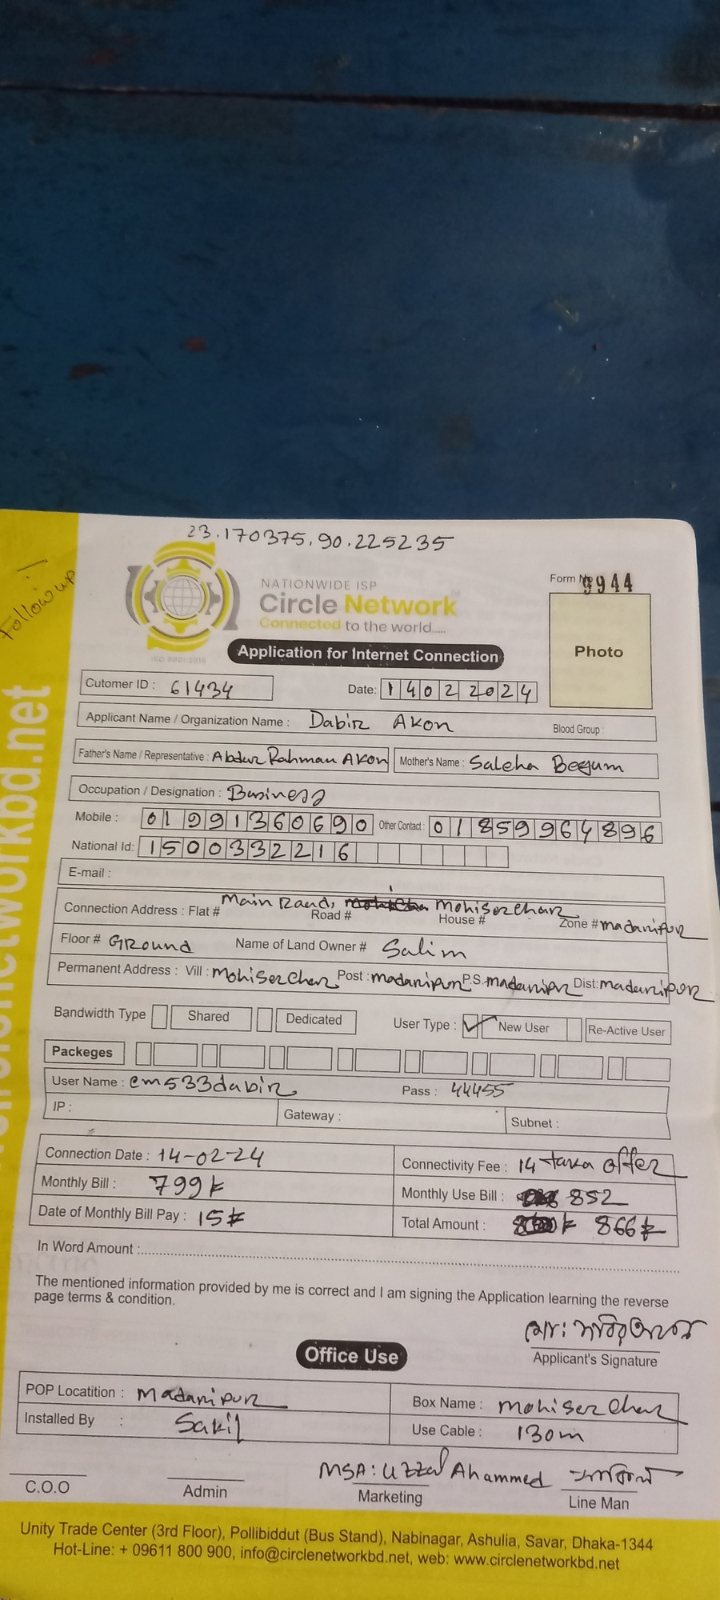 23.170375, 90.225235
Follow up
NATIONWIDE ISP
Circle Network
Connected to the world....
ISO 9001:2015
Form No 9944
Photo
Application for Internet Connection
Cutomer ID : 61434 Date: 14022024
Applicant Name / Organization Name : Dabir Akon Blood Group :
Father's Name / Representative : Abdur Rahman Akon Mother's Name : Saleha Begum
Occupation / Designation : Business
Mobile : 01991360690 Other Contact : 01859964896
National Id: 1500332216
E-mail :
Connection Address : Flat # Main Raod, Road # Mohiserchar House # Zone # madaripur
Floor # Ground Name of Land Owner # Salim
Permanent Address : Vill : Mohiserchar Post : madaripur P.S. madaripur Dist: madaripur
Bandwidth Type Shared Dedicated User Type : New User Re-Active User
Packeges
User Name : cm533dabir Pass : 44455
IP : Gateway : Subnet :
Connection Date : 14-02-24 Connectivity Fee : 14 taka offer
Monthly Bill : 799৳ Monthly Use Bill : 852
Date of Monthly Bill Pay : 15৳ Total Amount : 866৳
In Word Amount :
The mentioned information provided by me is correct and I am signing the Application learning the reverse
page terms & condition.
Applicant's Signature
Office Use
POP Locatition : Madaripur Box Name : Mohiserchar
Installed By : Sakil Use Cable : 130m
MSA: Uzzal Ahammed
C.O.O Admin Marketing Line Man
Unity Trade Center (3rd Floor), Pollibiddut (Bus Stand), Nabinagar, Ashulia, Savar, Dhaka-1344
Hot-Line: + 09611 800 900, info@circlenetworkbd.net, web: www.circlenetworkbd.net